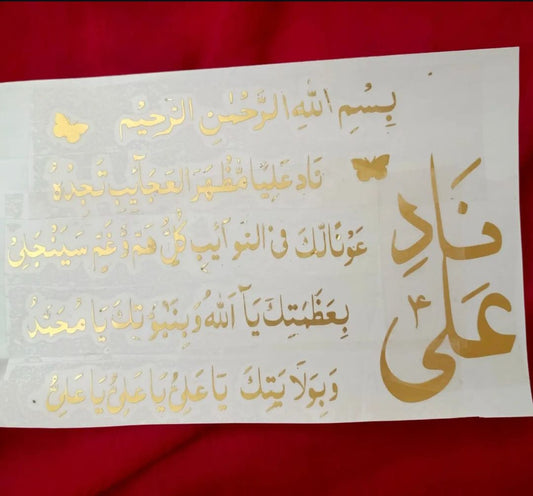 بِسْمِ اللهِ الرَّحْمٰنِ الرَّحِيْمِ
نَادِ عَلِيًا مَّظْهَرَ العَجَآئِبِ تَجِدْهُ
عَوْنًا لَّكَ فِي النَّوَآئِبِ كُلُّ هَمٍّ وَّغَمٍّ سَيَنْجَلِيْ
بِعَظَمَتِكَ يَآ اَللهُ وَبِنَبُوَّتِكَ يَا مُحَمَّدُ
وَبِوَلَايَتِكَ يَا عَلِيُّ يَا عَلِيُّ يَا عَلِيُّ
نَادِ
عَلَى ؑ